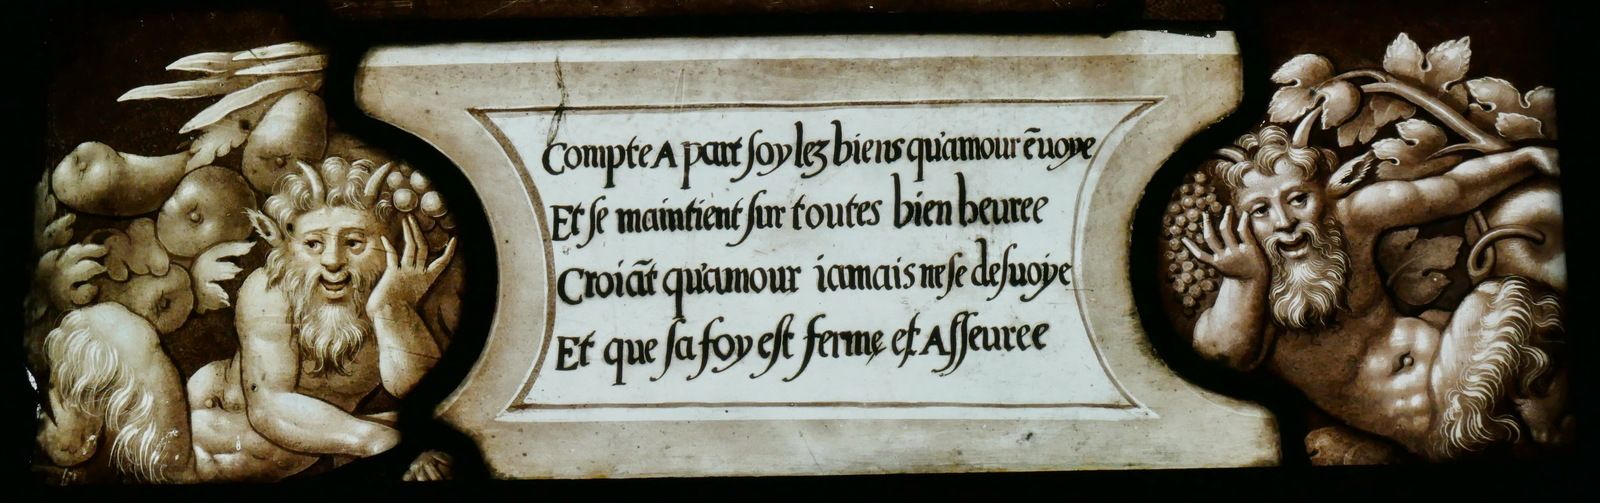 Compte A part soy lez biens qu'amour ẽuoye
Et se maintient sur toutes bien heuree
Croiãt qu'amour iamais ne se desuoye
Et que sa foy est ferme et Asseuree